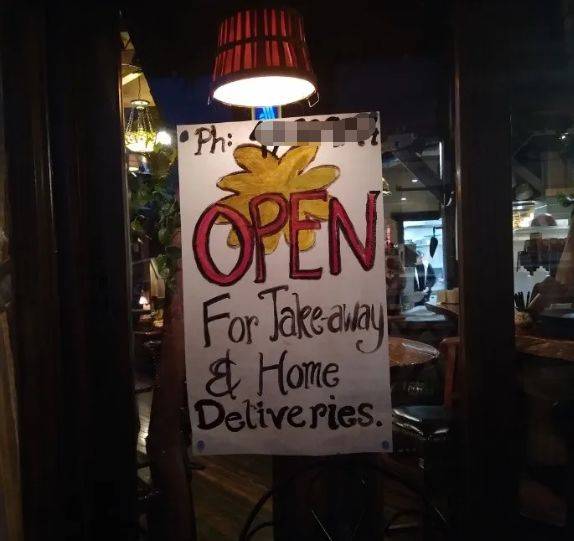 Ph:
OPEN
For Take-away
& Home
Deliveries.